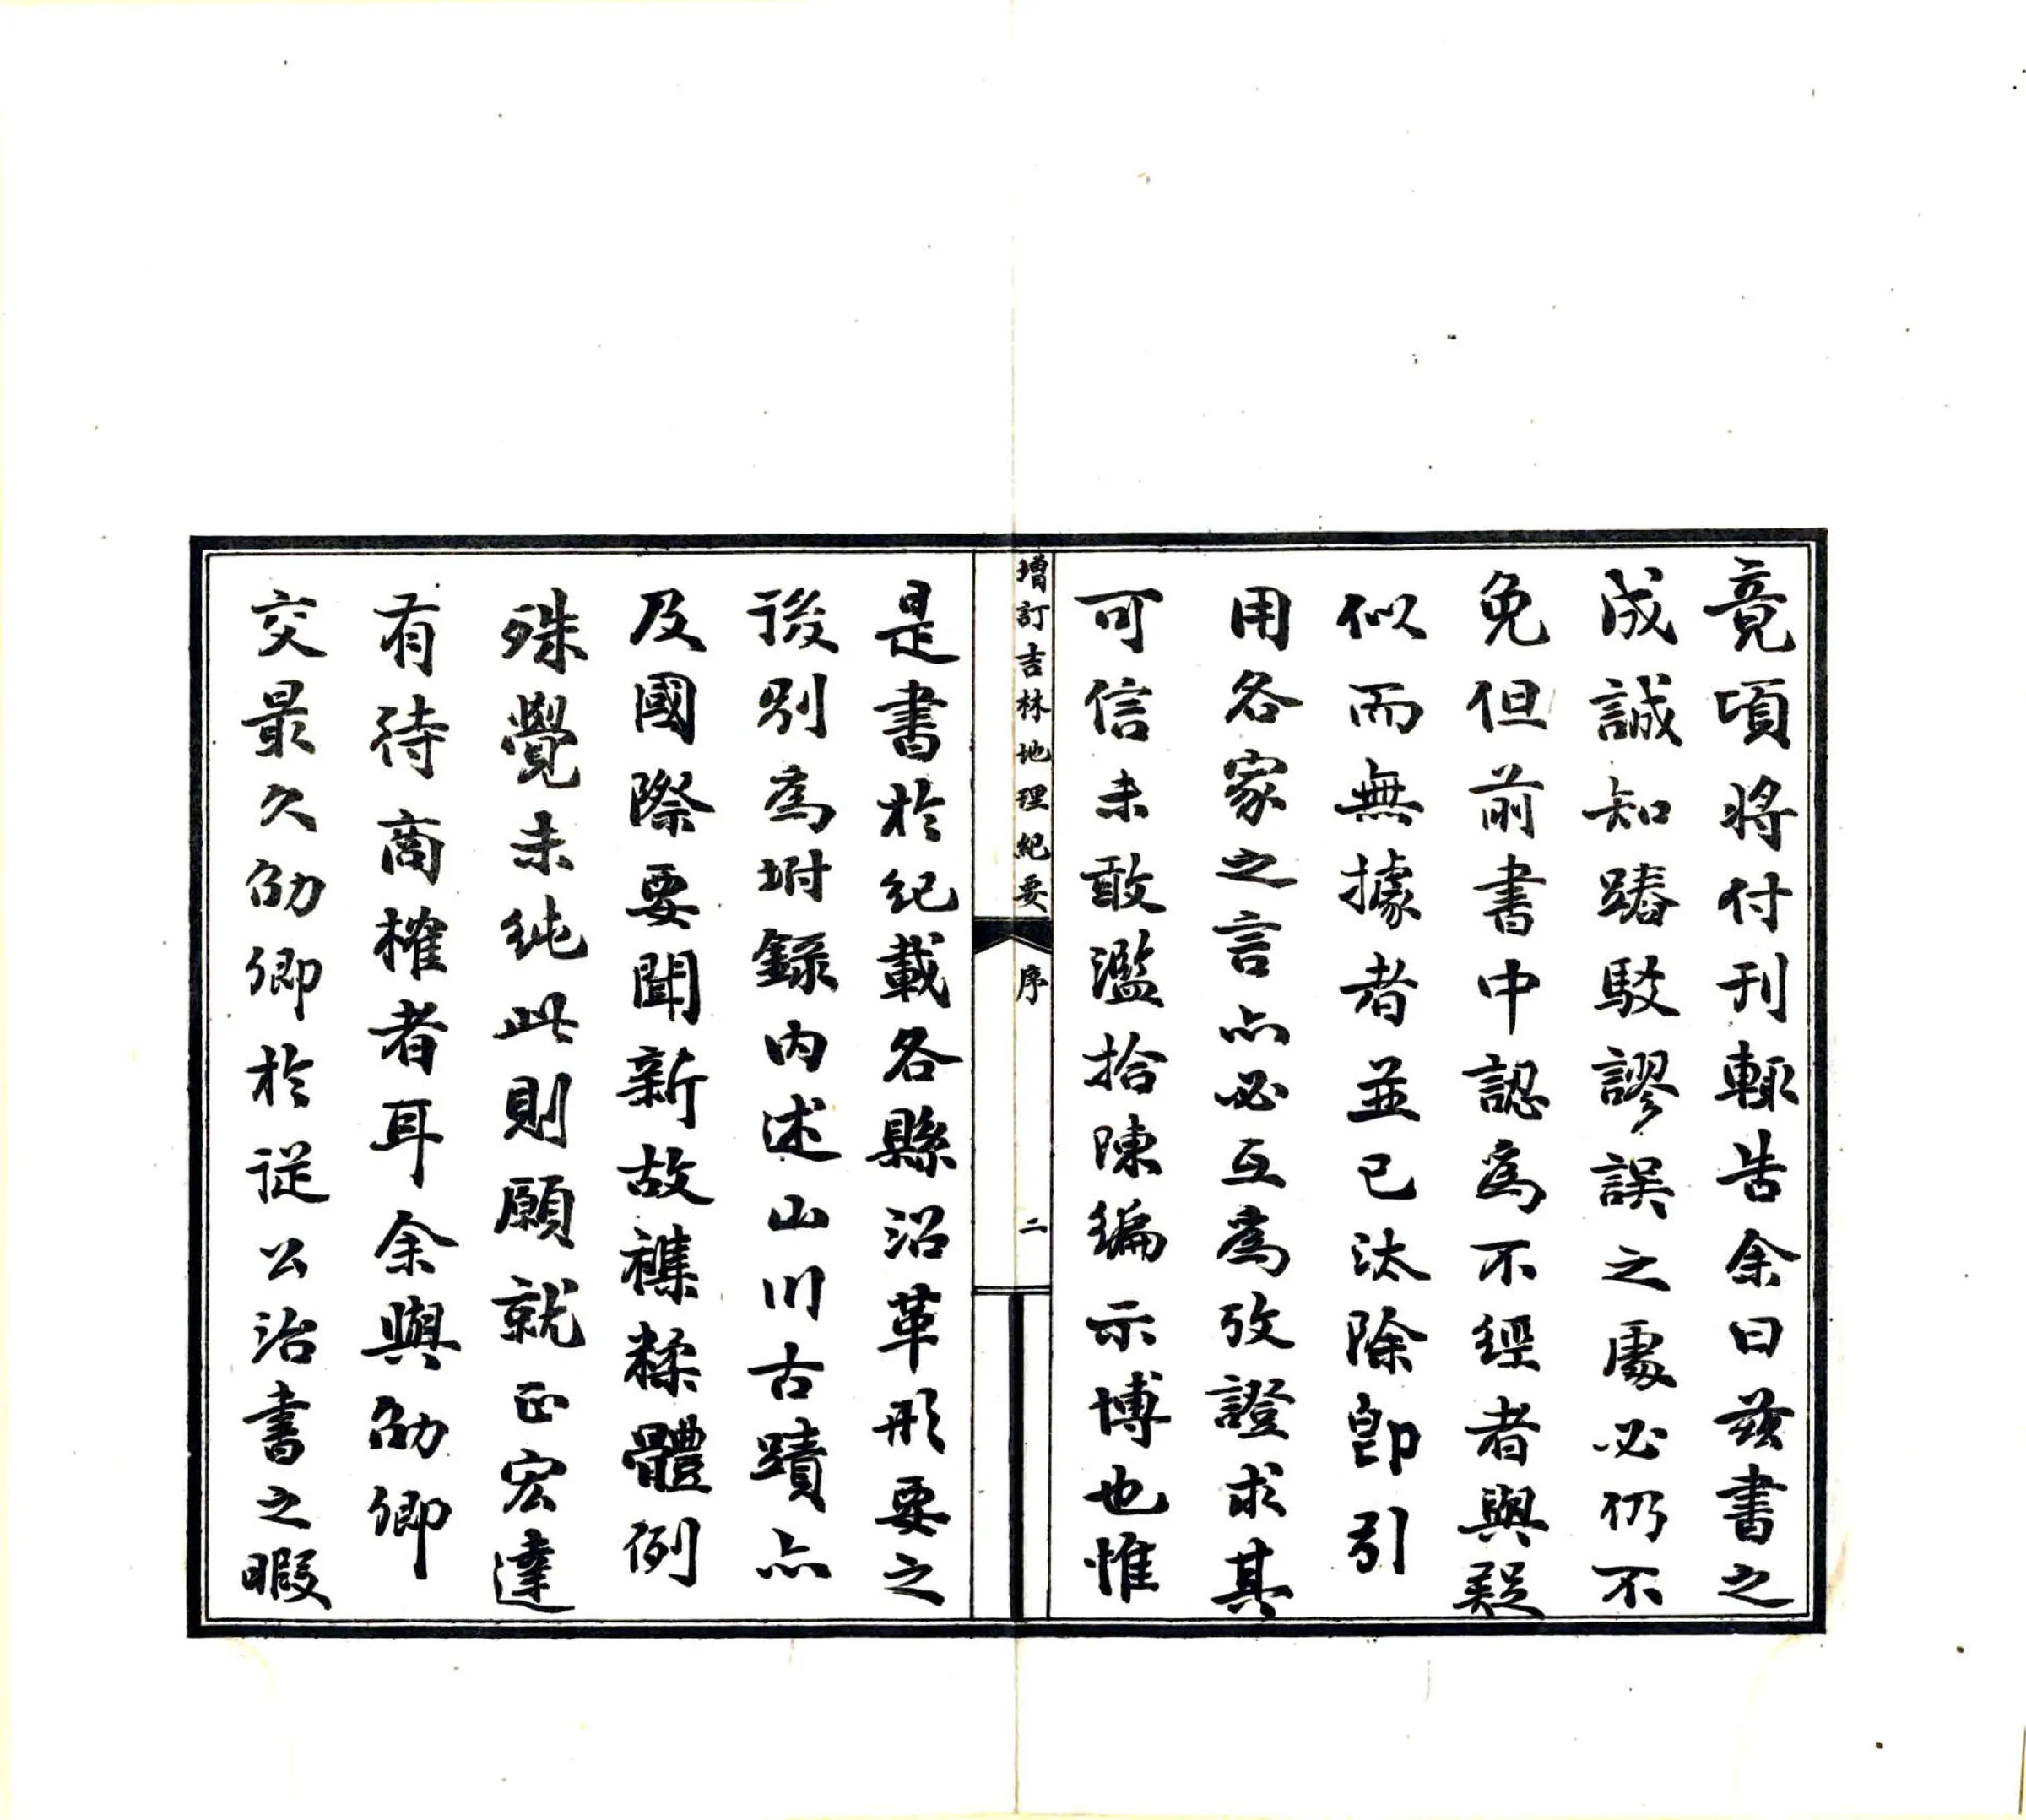 竟頃將付刊輒告余曰茲書之
成誠知踳駁謬誤之處必仍不
免但前書中認爲不經者與疑
似而無據者並已汰除卽引
用各家之言亦必互爲攷證求其
可信未敢濫拾陳編示博也惟
增訂吉林地理紀要
序
二
是書於紀載各縣沿革形要之
後別爲坿錄內述山川古蹟亦
及國際要聞新故襍糅體例
殊覺未純此則願就正宏達
有待商榷者耳余與劭卿
交最久劭卿於從公治書之暇